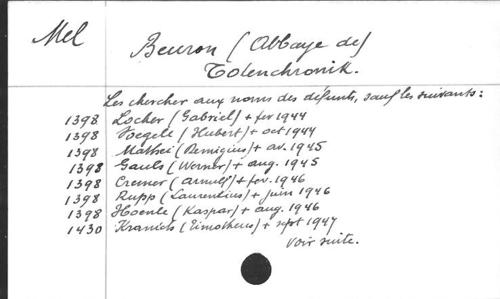 Mel
Beuron (Abbaye de)
Totenchronik.
Les chercher aux noms des défunts, sauf les suivants:
1398 Locher (Gabriel) + fev 1944
1398 Voegele (Hubert) + oct 1944
1398 Mathei (Remigius) + av. 1945
1398 Gauls (Werner) + aug. 1945
1398 Cremer (Arnulf) + fev. 1946
1398 Rupp (Laurentius) + juin 1946
1398 Hoenle (Kaspar) + aug. 1946
1430 Kranich (Timotheus) + sept 1947
voir suite.